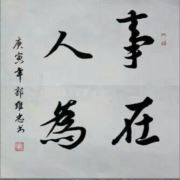 事在
人為
庚寅年郭維忠書